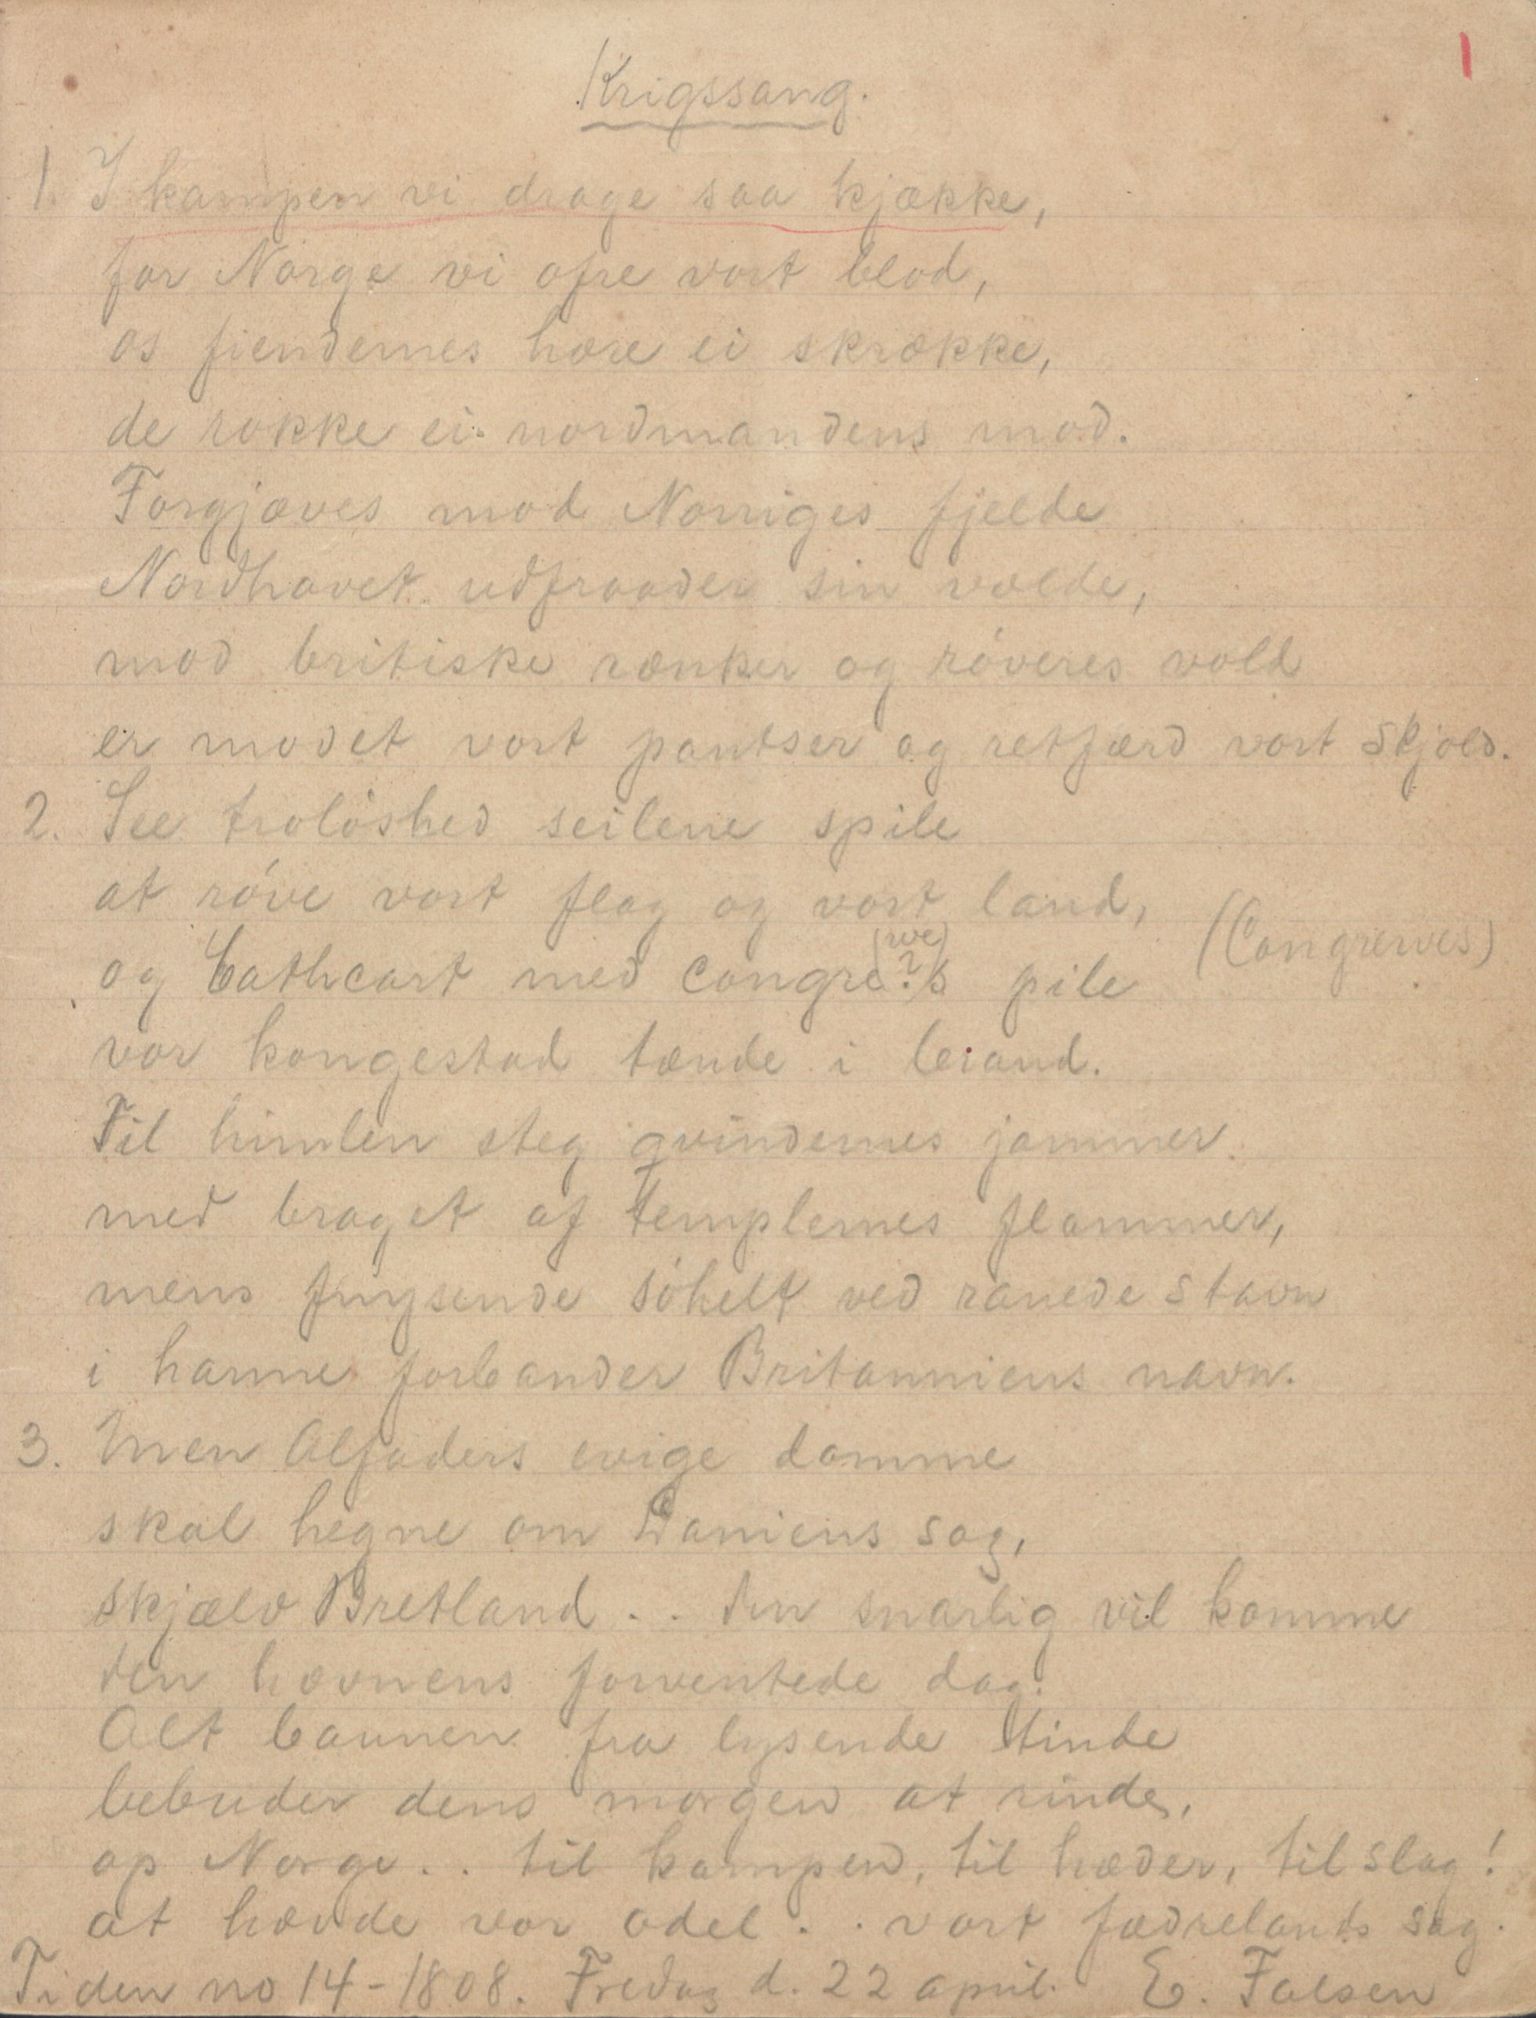 1
Krigssang.
1. I kampen vi drage saa kjække,
for Norge vi ofre vort blod,
os fiendernes hære ei skrække,
de rokke ei nordmandens mod.
Forgjæves mod Norriges fjelde
Nordhavet udfraader sin vælde,
mod britiske rænker og róveres vold
er modet vort pantser og retfærd vort Skjold.
2. See trolóshed seilene spile
at róve vort flag og vort land,
og Cathcart med Congre?s pile
(we)
(Congrewes)
vor kongestad tænde i brand.
Til himlen steg qvindernes jammer
med braget af templernes flammer,
mens fnysende sóhelt ved ranede stavn
i harme forbander Britanniens navn.
3. Men Alfaders evige domme
skal hegne om Daniens sag,
skjælv Bretland . . den snarlig vil komme
den hævnens forventede dag.
Alt baunen fra lysende tinde
bebuder dens morgen at rinde,
op Norge . . til kampen, til hæder, til slag!
at hævde vor odel . . vort fædrelands sag.
Tiden no 14 - 1808. Fredag d. 22 april. E. Falsen